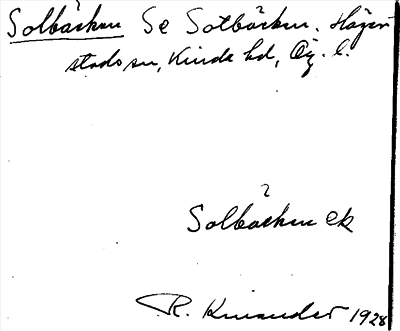 Solbäcken Se Sotbäcken. Hägers-
stads sn, Kinda hd, Ög. l.
?
Solbäcken ek
R. Kinander 1928